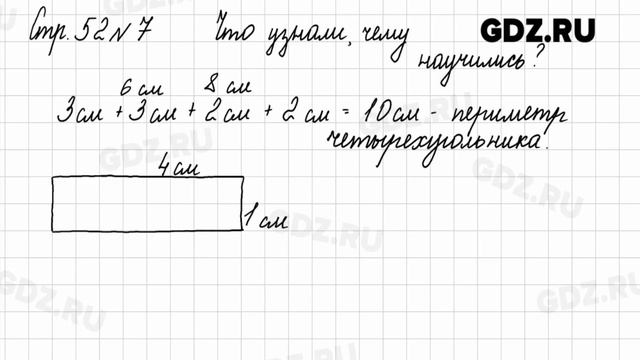 Стр. 52 № 7 Что узнали, чему научились?
GDZ.RU
6 см 8 см
3 см + 3 см + 2 см + 2 см = 10 см - периметр
четырехугольника.
4 см
1 см
GDZ.RU
GDZ.RU
GDZ.RU
GDZ.RU
GDZ.RU
GDZ.RU